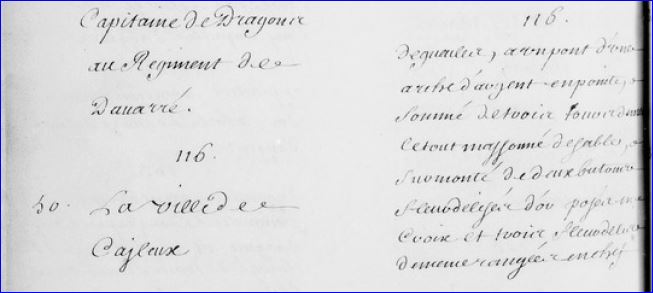 Capitaine de Dragons
au Regiment de
Dauarré.
116.
50. La ville de
Cajleux
116.
De gueules, a un pont d'une
arche d'argent en pointe,
sommé de trois tours de
le tout massonné de sable,
surmonté de deux batons
fleurdelisés d'or posés en
croix et trois fleurdelis
de meme rangées en chef